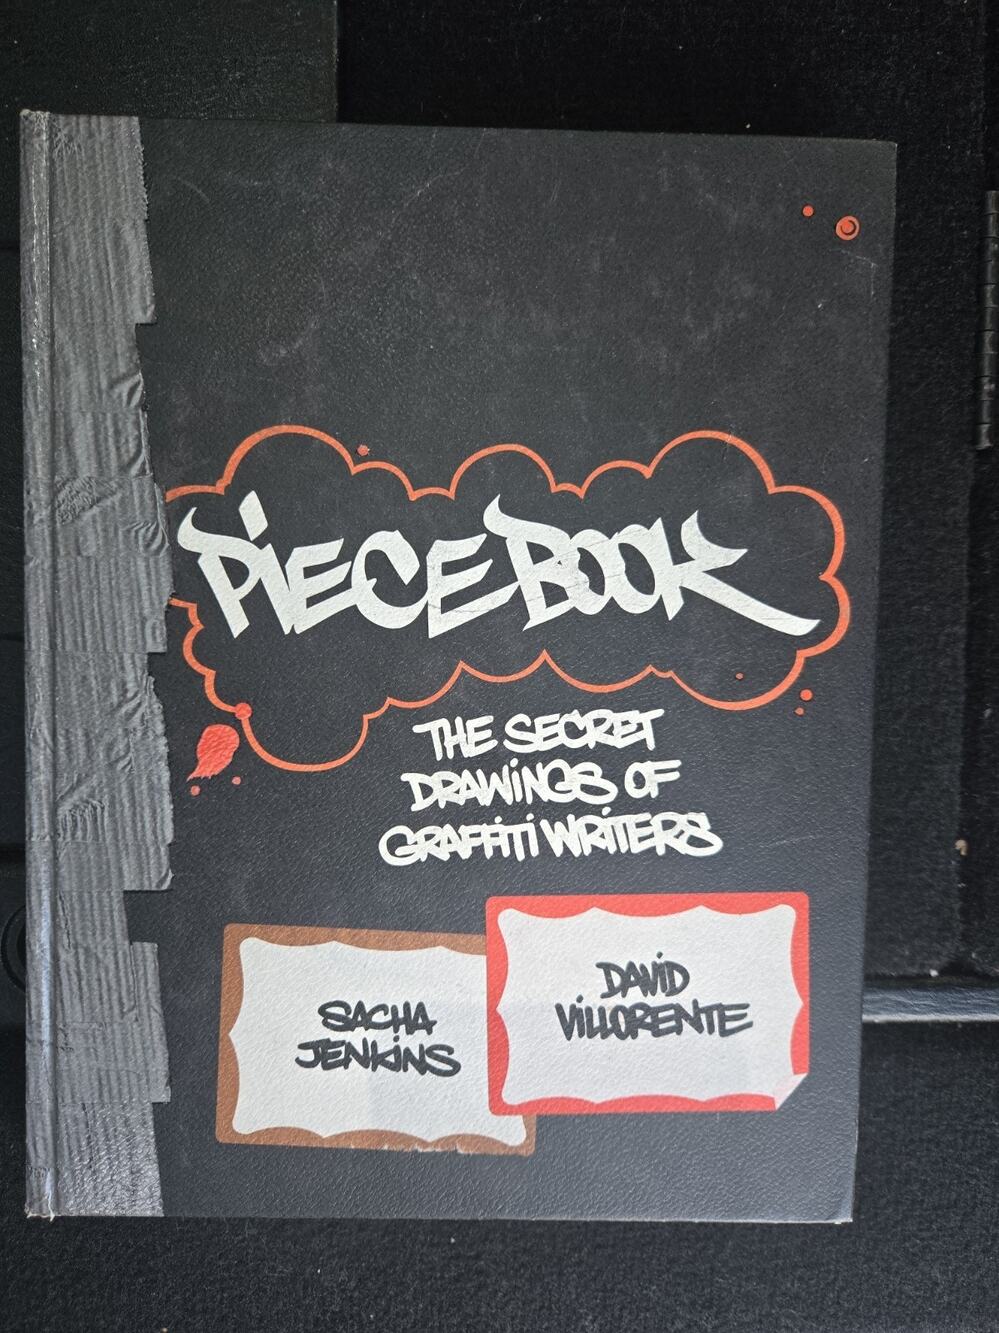 PIECEBOOK
THE SECRET
DRAWINGS OF
GRAFFITI WRITERS
SACHA
JENKINS
DAVID
VILLORENTE